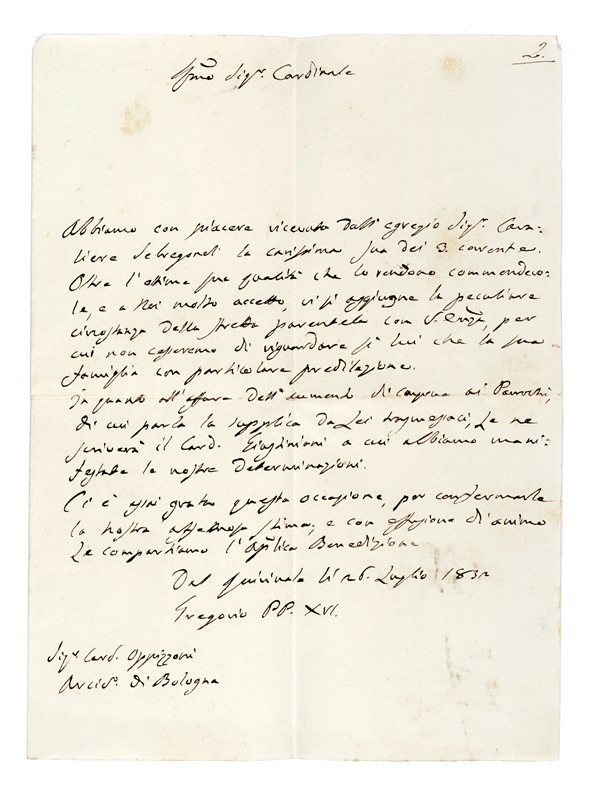 2.
Emo Sigr. Cardinale
Abbiamo con piacere ricevuto dall'egregio Sigr. Cava-
liere la carissima sua dei 3. corrente.
Oltre l'ottime sue qualità che lo rendono commendevo-
le, e a Noi molto accetto, vi si aggiugne la peculiare
circostanza della stretta parentela con V. Emza, per
cui non cesseremo di riguardare sì lui che la sua
famiglia con particolare predilezione.
In quanto all'affare dell'aumento di congrua ai Parrochi,
di cui parla la supplica da Lei trasmessaci, Le ne
scriverà il Card. Giustiniani a cui abbiamo mani-
festate le nostre determinazioni.
Ci è assai grata questa occasione, per confermarle
la nostra affettuosa stima; e con effusione di animo
Le compartiamo l'Aplica Benedizione
Dal Quirinale li 26. Luglio 1832
Gregorio PP. XVI.
Sigr. Card. Oppizzoni
Arciv. di Bologna